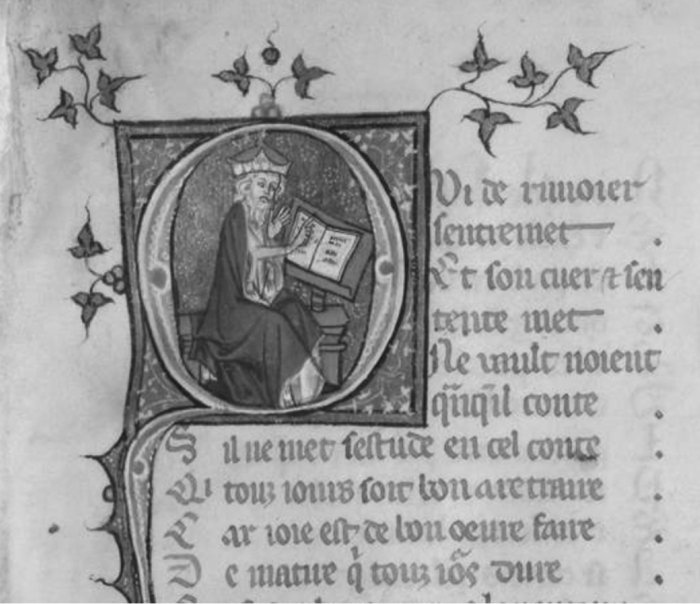 Vi de rimoier
sentremet .
Et son cuer et sen
tente met .
Ne vault noient
qñqil conte .
S il ne met sestude en cel conte .
Qi touz iours soit bon a retraire .
C ar ioie est de bon oeure faire .
D e matire q̃ touz iõs dure .